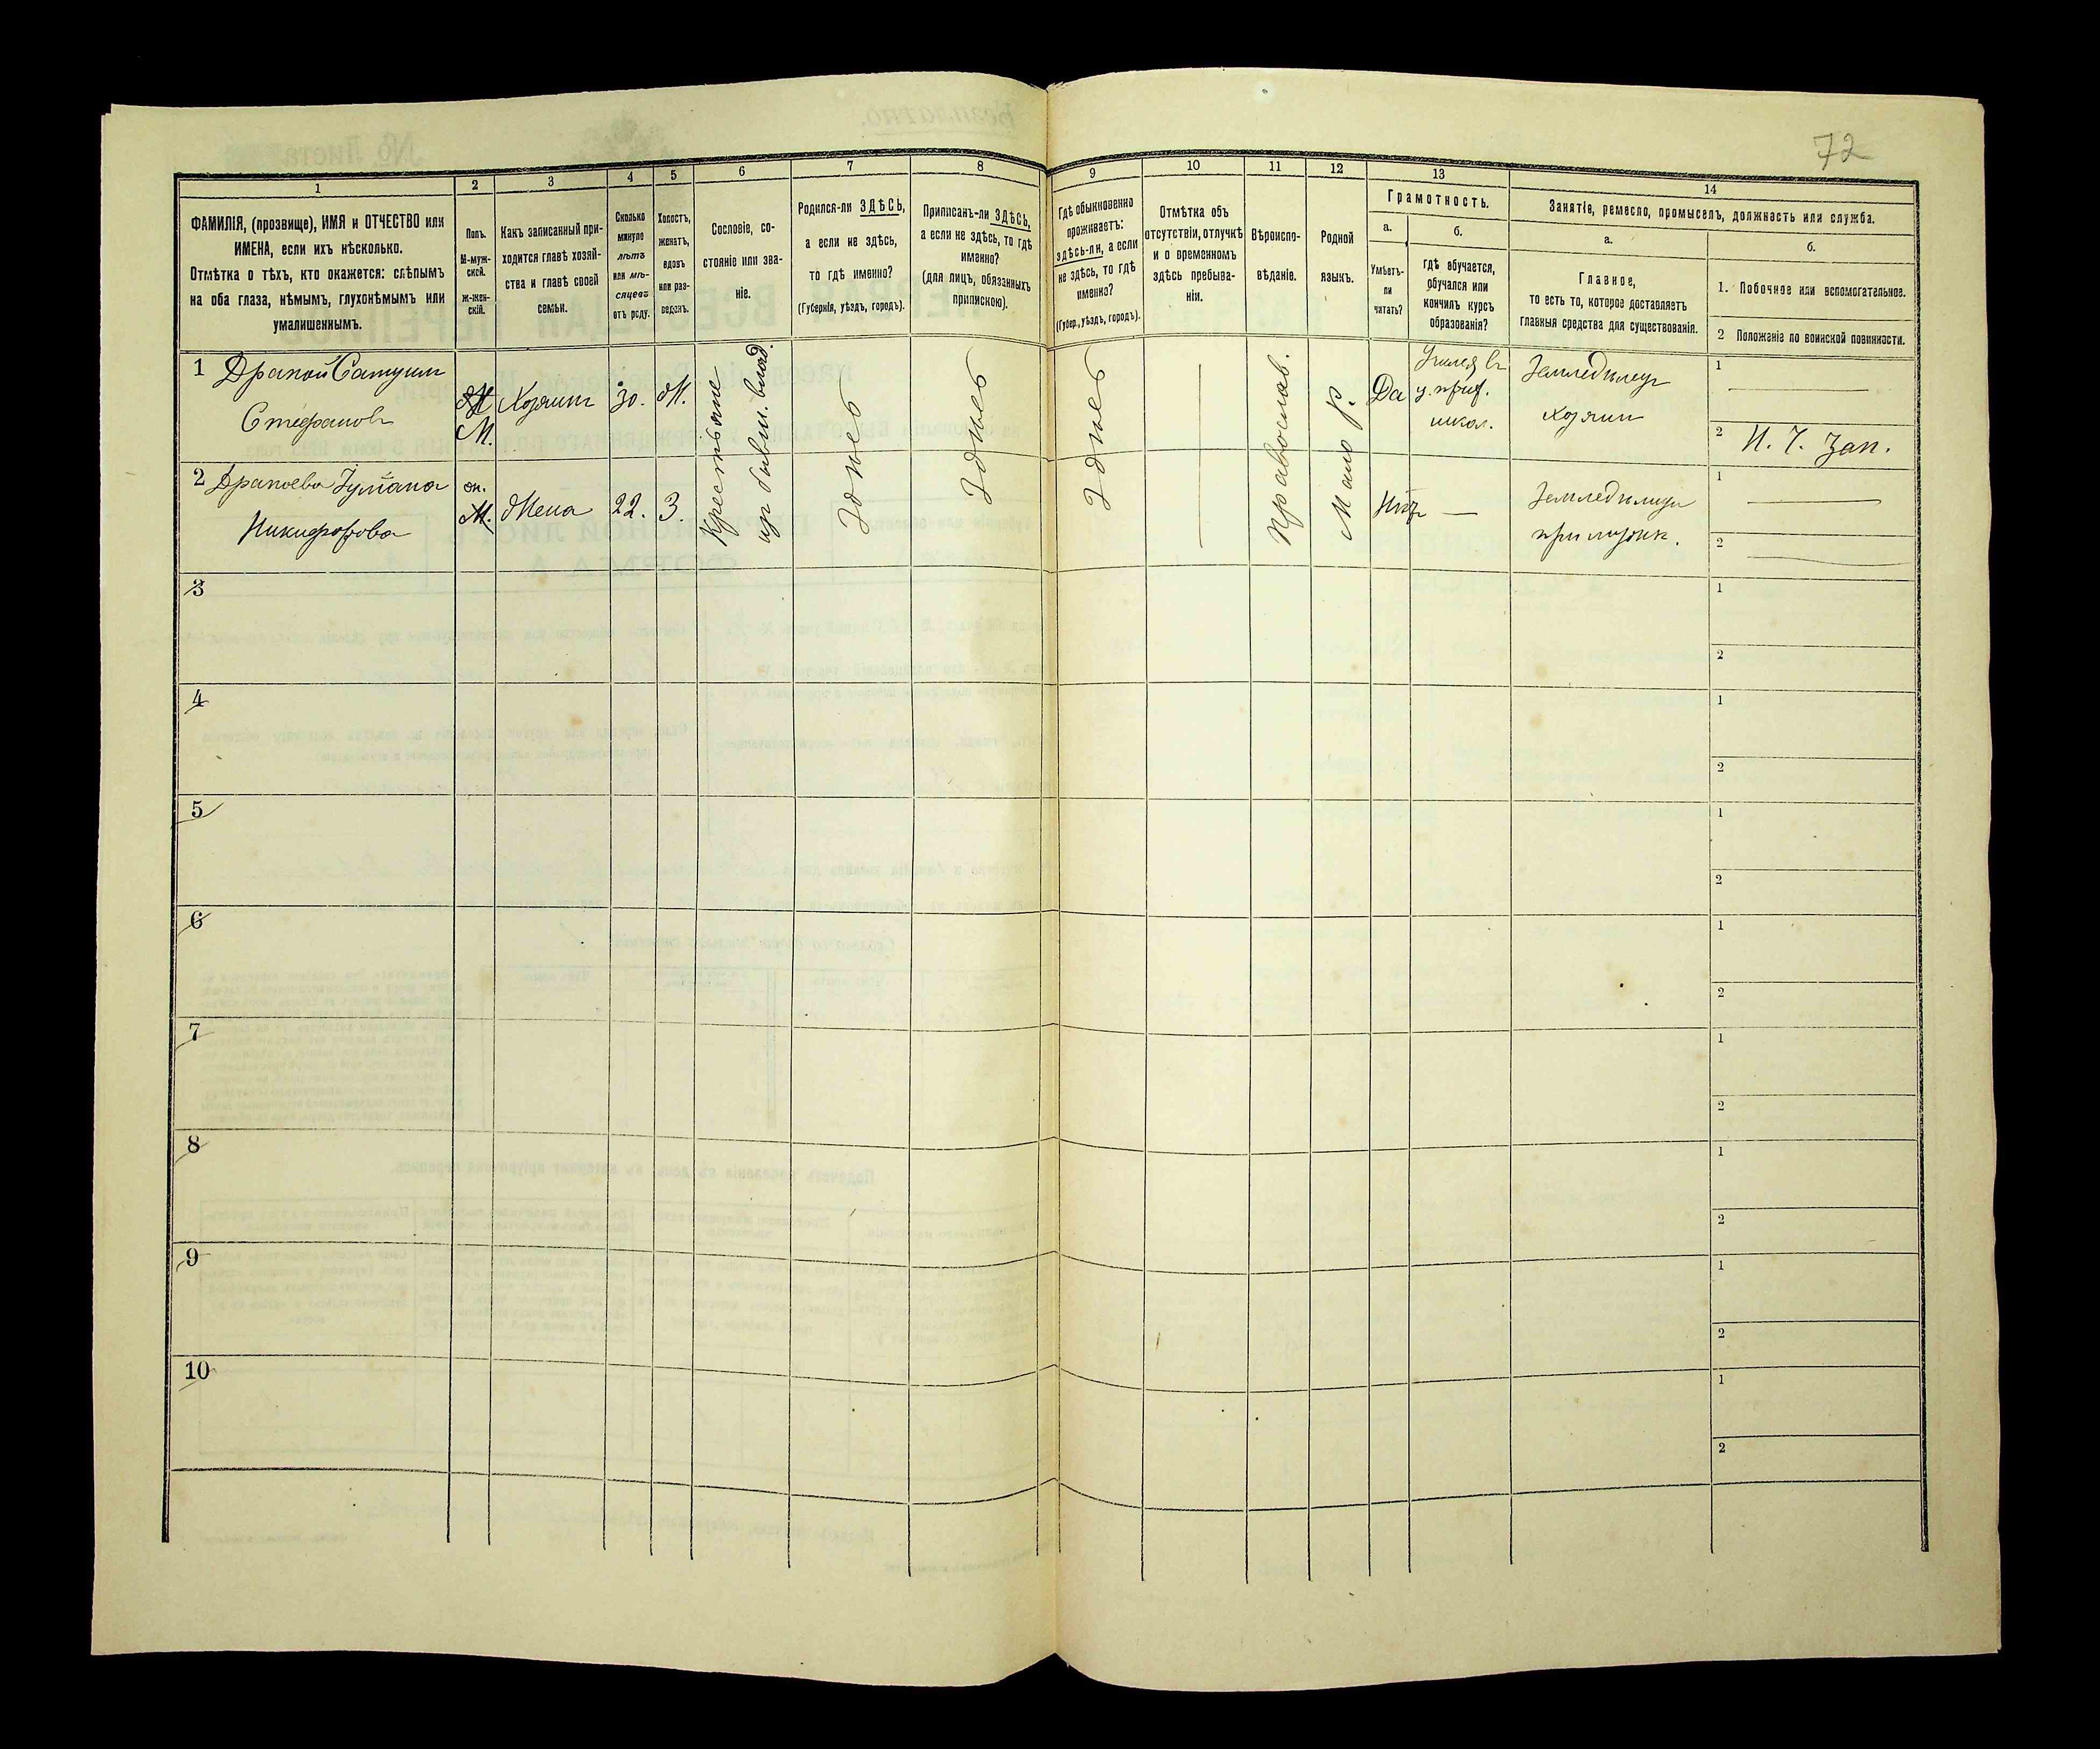 72
1
2
3
4
5
6
7
8
9
10
11
12
13
14
ФАМИЛІЯ, (прозвище), ИМЯ и ОТЧЕСТВО или
ИМЕНА, если ихъ нѣсколько.
Отмѣтка о тѣхъ, кто окажется: слѣпымъ
на оба глаза, нѣмымъ, глухонѣмымъ или
умалишеннымъ.
Полъ.
М-муж-
ской.
Ж-жен-
скій.
Какъ записанный при-
ходится главѣ хозяй-
ства и главѣ своей
семьи.
Сколько
минуло
лѣтъ
или мѣ-
сяцевъ
отъ роду.
Холостъ,
женатъ,
вдовъ
или раз-
веденъ.
Сословіе, со-
стояніе или зва-
ніе.
Родился-ли ЗДѢСЬ,
а если не здѣсь,
то гдѣ именно?
(Губернія, уѣздъ, городъ).
Приписанъ-ли ЗДѢСЬ,
а если не здѣсь, то гдѣ
именно?
(для лицъ, обязанныхъ
припискою).
Гдѣ обыкновенно
проживаетъ:
здѣсь-ли, а если
не здѣсь, то гдѣ
именно?
(Губер., уѣздъ, городъ).
Отмѣтка объ
отсутствіи, отлучкѣ
и о временномъ
здѣсь пребыва-
ніи.
Вѣроиспо-
вѣданіе.
Родной
языкъ.
Грамотность.
а.
Умѣетъ-
ли
читать?
б.
гдѣ обучается,
обучался или
кончилъ курсъ
образованія?
Занятіе, ремесло, промыселъ, должность или служба.
а.
Главное,
то есть то, которое доставляетъ
главныя средства для существованія.
б.
1. Побочное или вспомогательное.
2 Положеніе по воинской повинности.
1 Драпой
Стефановъ
М.
Хозяинъ
30.
Ж.
Крестьяне
из бывш. влад.
Здѣсь
Здѣсь
Здѣсь
Православ.
Мало р.
Да
школ.
Земледѣлецъ
хозяин
1
2
2 Драпоева
Никифорова
Жена
22.
З.
Нѣтъ —
1
2
3
1
2
4
1
2
5
1
2
6
1
2
7
1
2
8
1
2
9
1
2
10
1
2